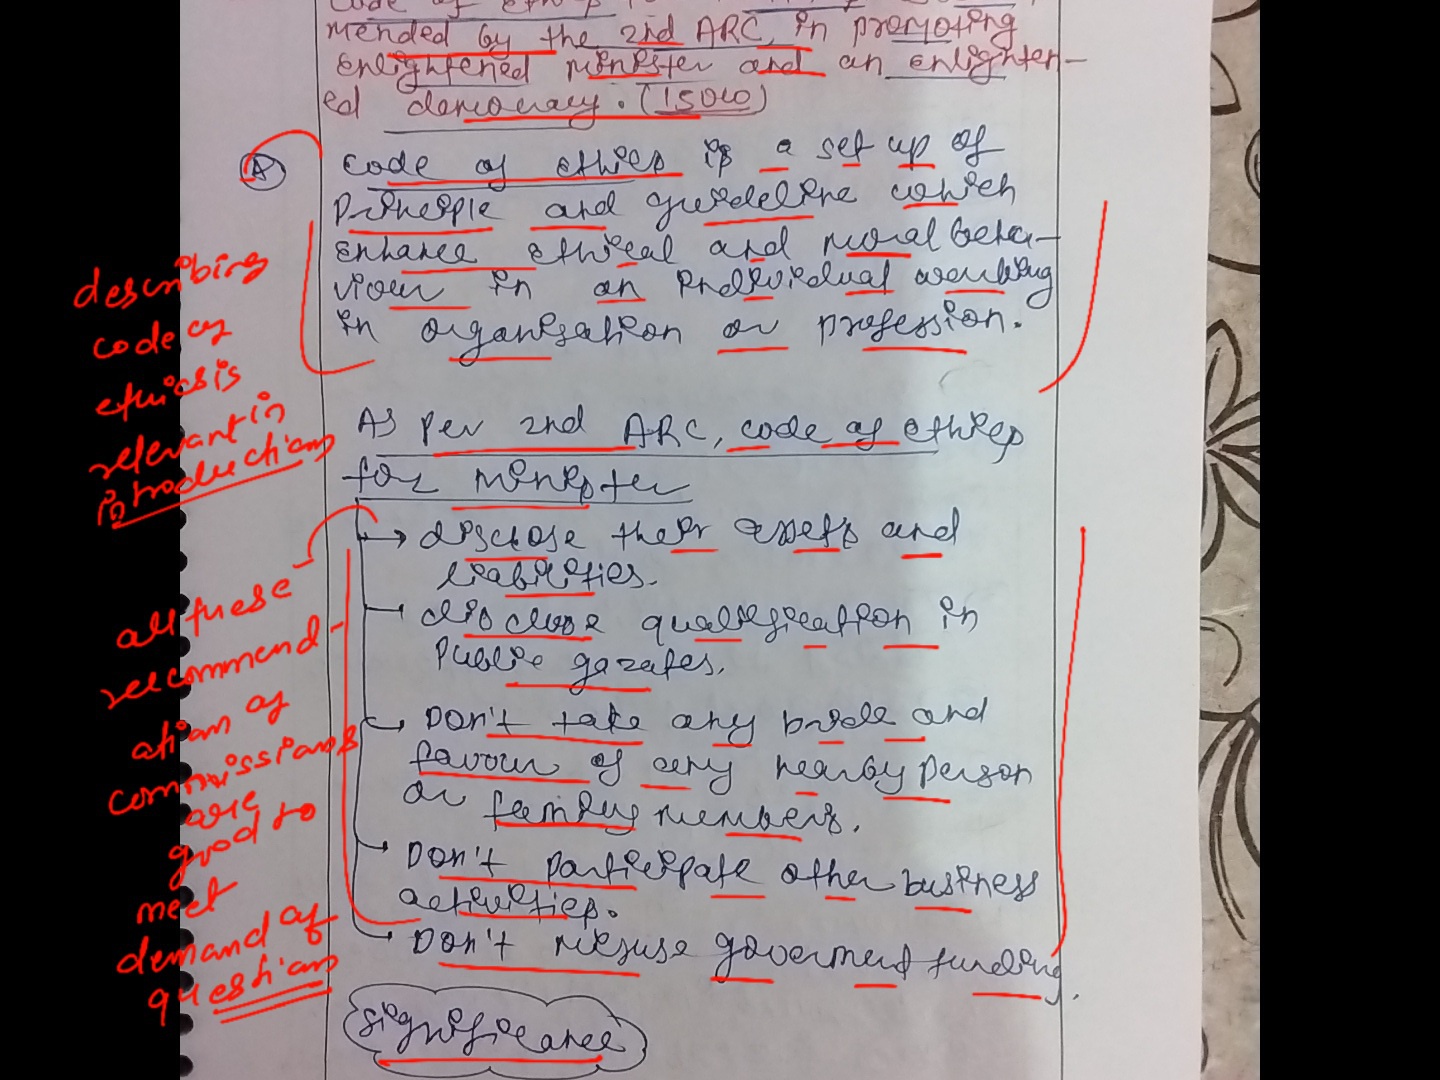 mended by the 2nd ARC, in promoting
enlightened minister and an enlighten-
ed democracy. (150w)
A
code of ethics is a set up of
Principle and guideline which
enhance ethical and moral beha-
viour in an individual working
in organisation or profession.
describing
code of
ethics is
relevant in
introduction
As per 2nd ARC, code of ethics
for minister
→ disclose their assets and
liabilities.
→ disclose qualification in
public gazates.
→ Don't take any bride and
favour of any nearby person
or family members.
→ Don't participate other business
activities.
→ Don't misuse goverment funding.
all these
recommend-
ation of
commissions
are
good to
meet
demand of
question
significance